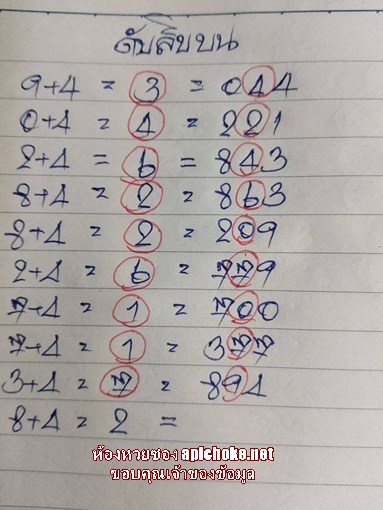 ดับสิบบน
9+4 = 3 = 044
0+4 = 4 = 221
2+4 = 6 = 843
8+4 = 2 = 863
8+4 = 2 = 209
2+4 = 6 = 779
7+4 = 1 = 700
7+4 = 1 = 377
3+4 = 7 = 894
8+4 = 2 =
ห้องหวยซอง apichoke.net
ขอบคุณเจ้าของข้อมูล